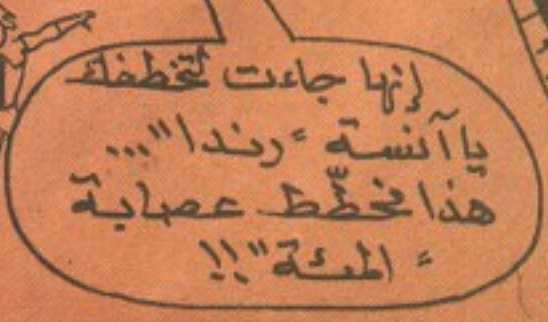 إنها جاءت لتخطفك
يا آنسة "رندا"...
هذا مخطّط عصابة
"المئة"!!